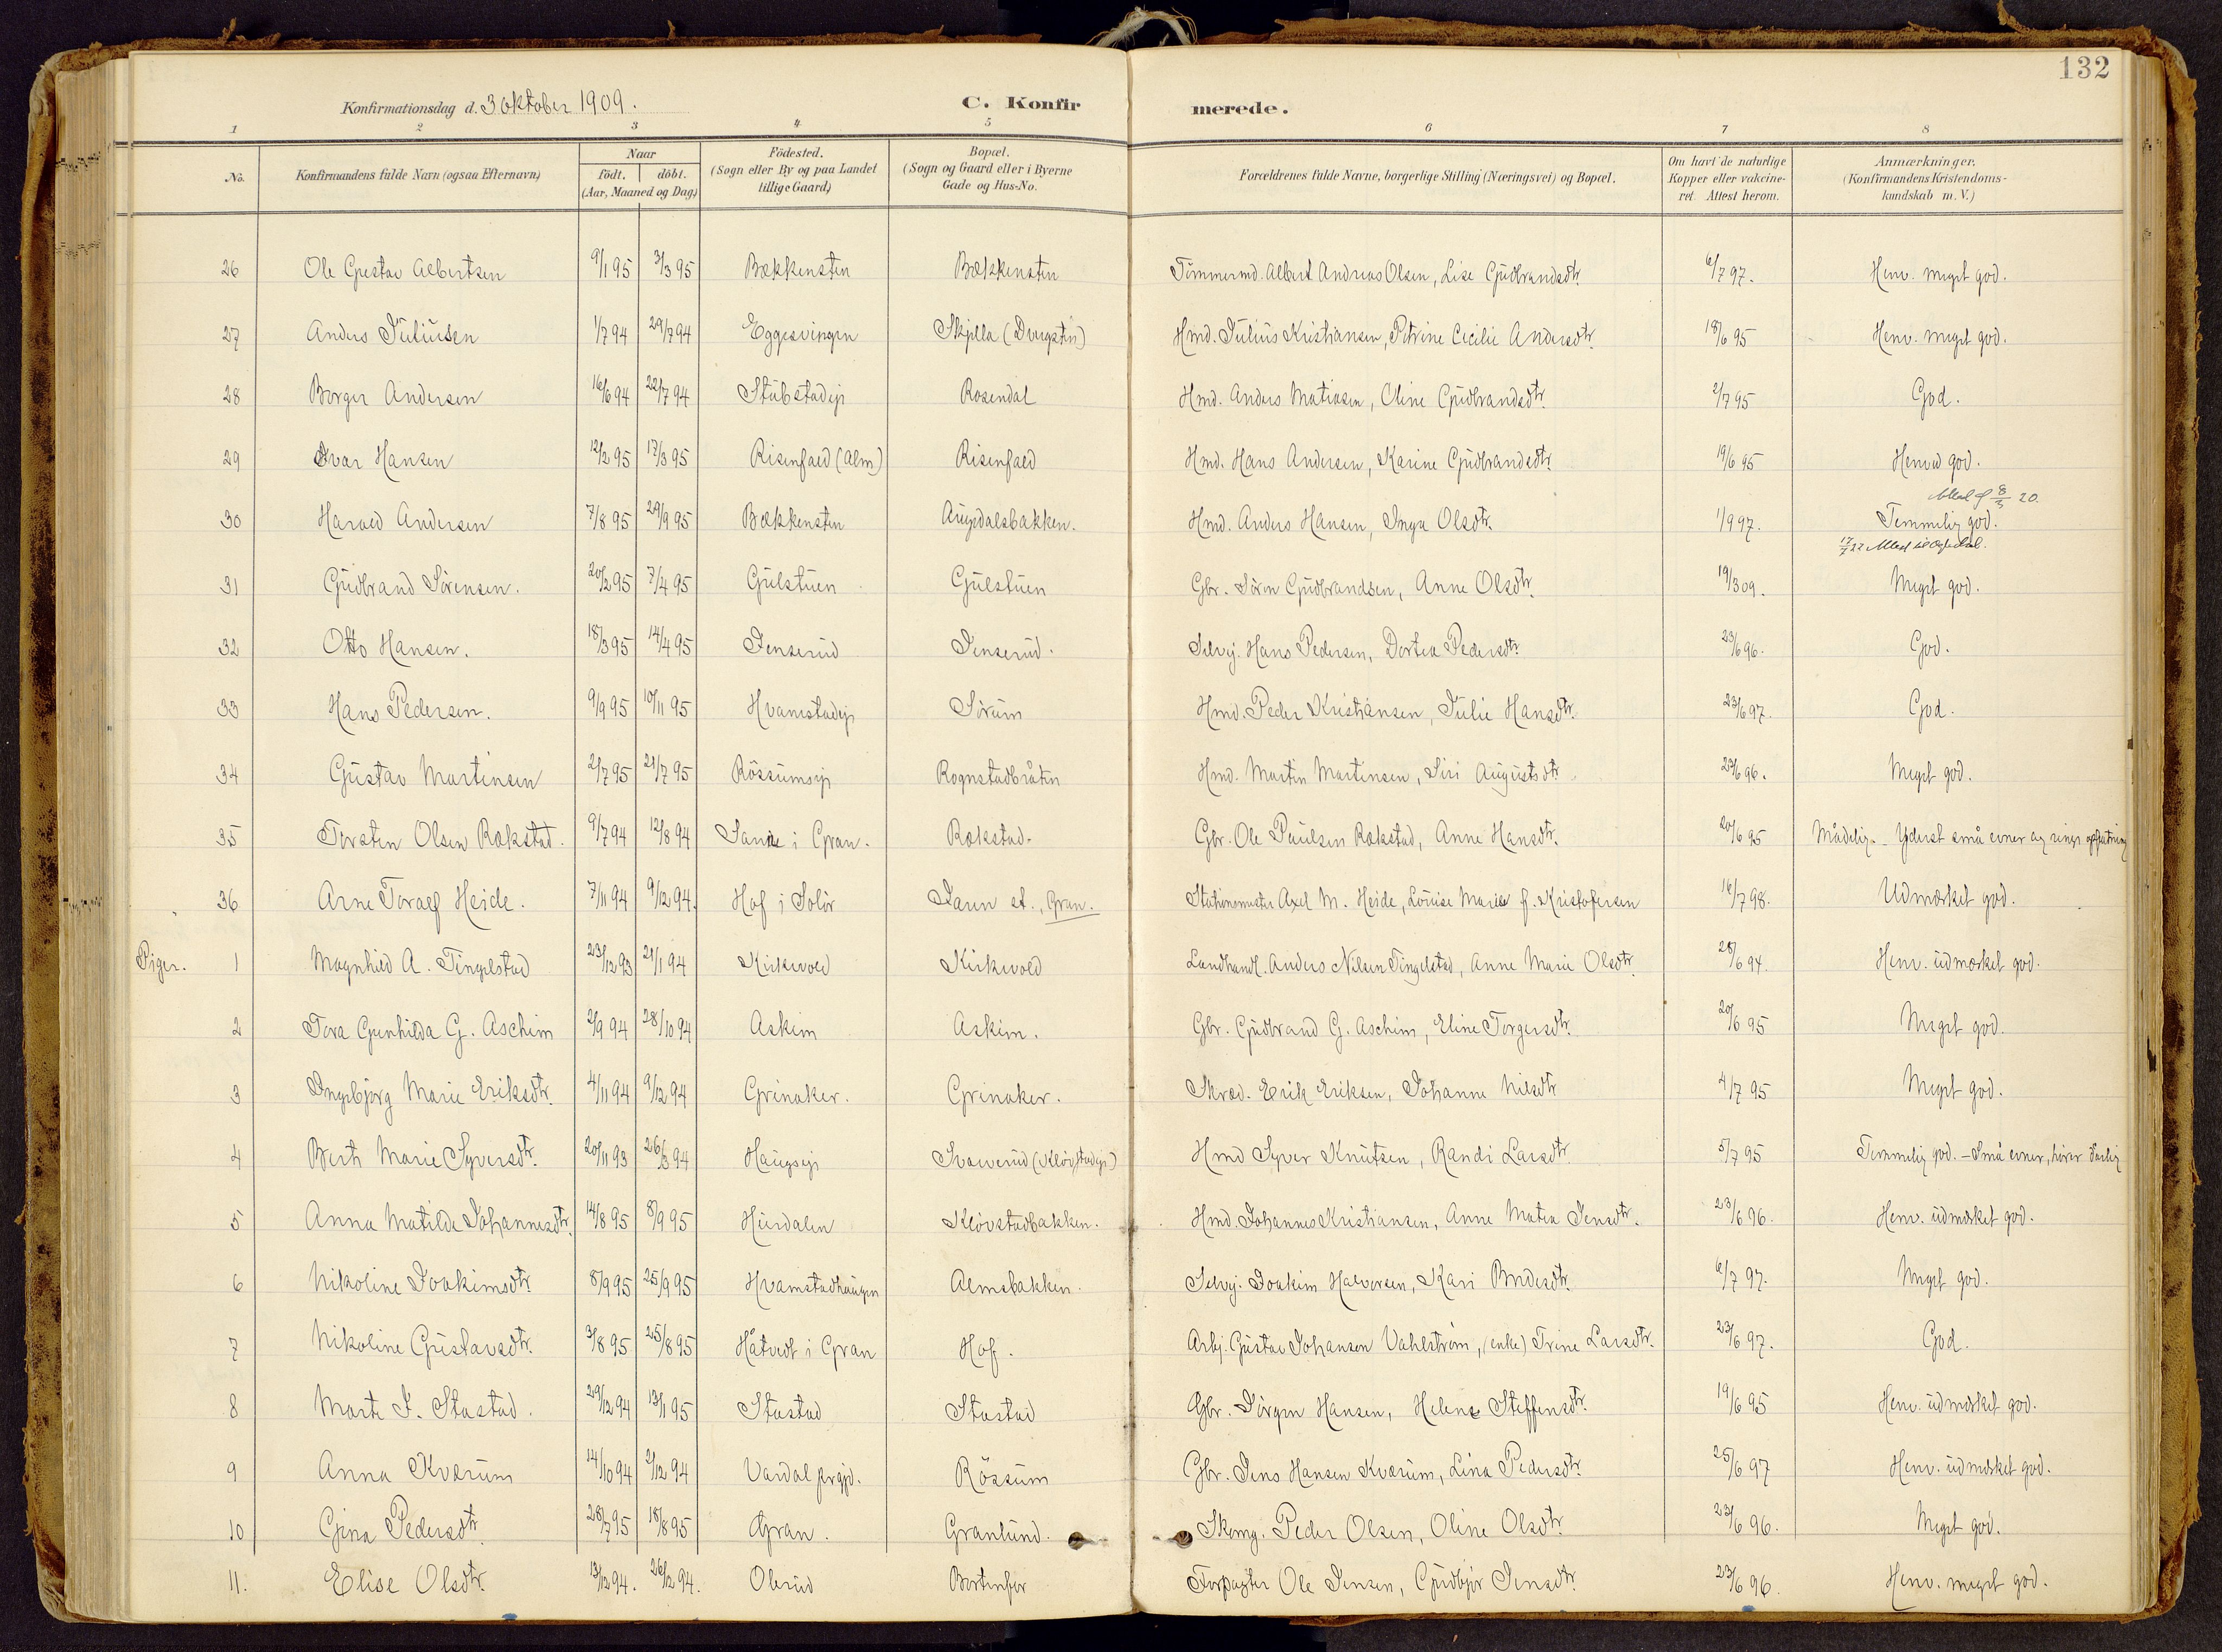 132
Konfirmationsdag d. 3 oktober 1909.
C. Konfir merede.
1 2 3 4 5 6 7 8
No.
Konfirmandens fulde Navn (ogsaa Efternavn)
Naar
födt. döbt.
(Aar, Maaned og Dag)
Födested.
(Sogn eller By og paa Landet
tillige Gaard)
Bopæl.
(Sogn og Gaard eller i Byerne
Gade og Hus-No.
Forældrenes fulde Navne, borgerlige Stilling (Næringsvei) og Bopæl.
Om havt de naturlige
Kopper eller vakcine-
ret. Attest herom.
Anmærkninger.
(Konfirmandens Kristendoms-
kundskab m. V.)
26 Ole Gustav Albertsen 9/1 95 3/3 95 Bækkensten Bækkensten Tömmermd. Albert Andreas Olsen, Lise Gudbrandsdtr. 6/7 97. Henv. meget god.
27 Anders Juliusen 1/7 94 29/7 94 Eggesvingen Skjella Hmd. Julius Kristiansen, Petrine Cecilie Andersdtr. 18/6 95 Henv. meget god.
28 Borger Andersen 16/6 94 22/7 94 Stubstadejr Rosendal Hmd. Anders Matiasen, Oline Gudbrandsdtr. 2/7 95 God.
29 Ivar Hansen 12/2 95 17/3 95 Risenfald (Alm) Risenfald Hmd. Hans Andersen, Karine Gudbrandsdtr. 19/6 95 Henv god.
30 Harald Andersen 7/8 95 29/9 95 Bækkensten Augedalsbakken. Hmd. Anders Hansen, Inga Olsdtr. 1/9 97. Temmelig god.
31 Gudbrand Sörensen. 20/2 95 7/4 95 Gulstuen Gulstuen Gbr. Sören Gudbrandsen, Anne Olsdtr. 19/3 09. Meget god.
32 Otto Hansen. 18/3 95 14/4 95 Jenserud Jenserud. Selvej. Hans Pedersen, Dortea Pedersdtr. 23/6 96. God.
33 Hans Pedersen. 9/9 95 10/11 95 Hvamstadejr Sörum Hmd. Peder Kristiansen, Julie Hansdtr. 23/6 97. God.
34 Gustav Martinsen 2/7 95 21/7 95 Rössumsejr Rognstadbråten Hmd. Martin Martinsen, Siri Augustsdtr. 23/6 96. Meget god.
35 Torsten Olsen Rækstad. 9/7 94 12/8 94 Sanne i Gran. Rækstad. Gbr. Ole Paulsen Rækstad, Anne Hansdtr. 20/6 95 Mådelig. - Yderst små evner og ringe opfatning
36 Arne Toralf Heide. 7/11 94 9/12 94. Hof i Solör Jaren st., Gran. Stationsmester Axel M. Heide, Louise Marie f. Kristofersen 16/7 98. Udmærket god.
Piger. 1 Magnhild A. Tingelstad 23/12 93 21/1 94 Kirkevold Kirkevold Landhandl. Anders Nilsen Tingelstad, Anne Marie Olsdtr. 28/6 94. Henv. udmærket god.
2 Tora Gunhilda G. Aschim 2/9 94 28/10 94 Askim Askim. Gbr. Gudbrand G. Aschim, Eline Torgersdtr. 20/6 95 Meget god.
3 Ingebjörg Marie Eriksdtr. 4/11 94 9/12 94 Grinaker. Grinaker. Skræd. Erik Eriksen, Johanne Nilsdtr 4/7 95 Meget god.
4 Berte Marie Syversdtr. 20/11 93 26/3 94 Haugsejr Svarverud Hmd Syver Knutsen, Randi Larsdtr. 5/7 95 Temmelig god. - Små evner, hörer dårlig
5 Anna Matilde Johannesdtr. 14/8 95 8/9 95 Hurdalen Klövstadbakken. Hmd. Johannes Kristiansen, Anne Matea Jensdtr. 23/6 96. Henv. udmærket god.
6 Nikoline Joakimsdtr. 8/9 95 25/9 95 Hvamstadhaugen Almsbakken. Selvej. Joakim Halvorsen, Kari Bredesdtr. 6/7 97. Meget god.
7 Nikoline Gustavsdtr. 3/8 95 25/8 95 Håtvedt i Gran Hof. Arbj. Gustav Johanson Vahlström, (enke) Trine Larsdtr. 23/6 97. God.
8 Marte J. Stastad. 29/12 94 13/1 95 Stastad Stastad Gbr. Jörgen Hansen, Helene Steffensdtr. 19/6 95 Henv. udmærket god.
9 Anna Kværum 14/10 94 2/12 94 Vardal prgjd. Rössum Gbr. Jens Hansen Kværum, Lina Pedersdtr. 25/6 97 Henv. udmærket god.
10 Gina Pedersdtr. 28/7 95 18/8 95 Gran. Granlund. Skomg. Peder Olsen, Oline Olsdtr. 23/6 96. Meget god.
11. Elise Olsdtr. 13/12 94. 26/12 94. Olerud Bortenfor Forpagter Ole Jensen, Gudbjör Jensdtr. 23/6 96. Henv. meget god.